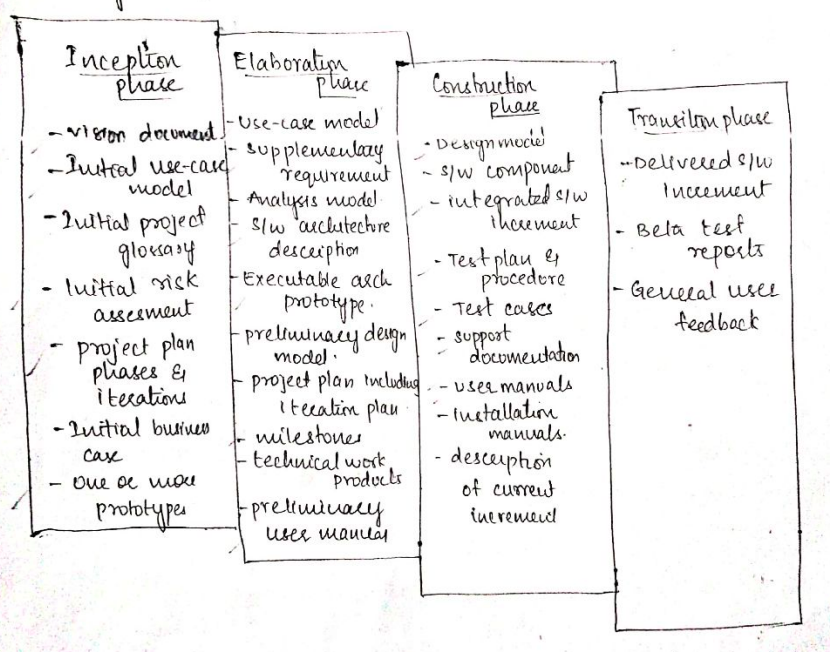 Inception
phase
- vision document
- Initial use-case
model
- Initial project
glossary
- Initial risk
assesment
- project plan
phases &
iterations
- Initial business
case
- one or more
prototypes
Elaboration
phase
- Use-case model
- supplementary
requirement
- Analysis model
- S/w architecture
description
- Executable arch
prototype.
- preliminary design
model.
- project plan including
iteration plan
- milestones
- technical work
products
- preliminary
user manual
Construction
phase
- Design model
- S/w component
- integrated S/w
increment
- Test plan &
procedure
- Test cases
- support
documentation
- user manuals
- installation
manuals.
- description
of current
increment
Transition phase
- Delivered S/w
Increment
- Beta test
reports
- General user
feedback